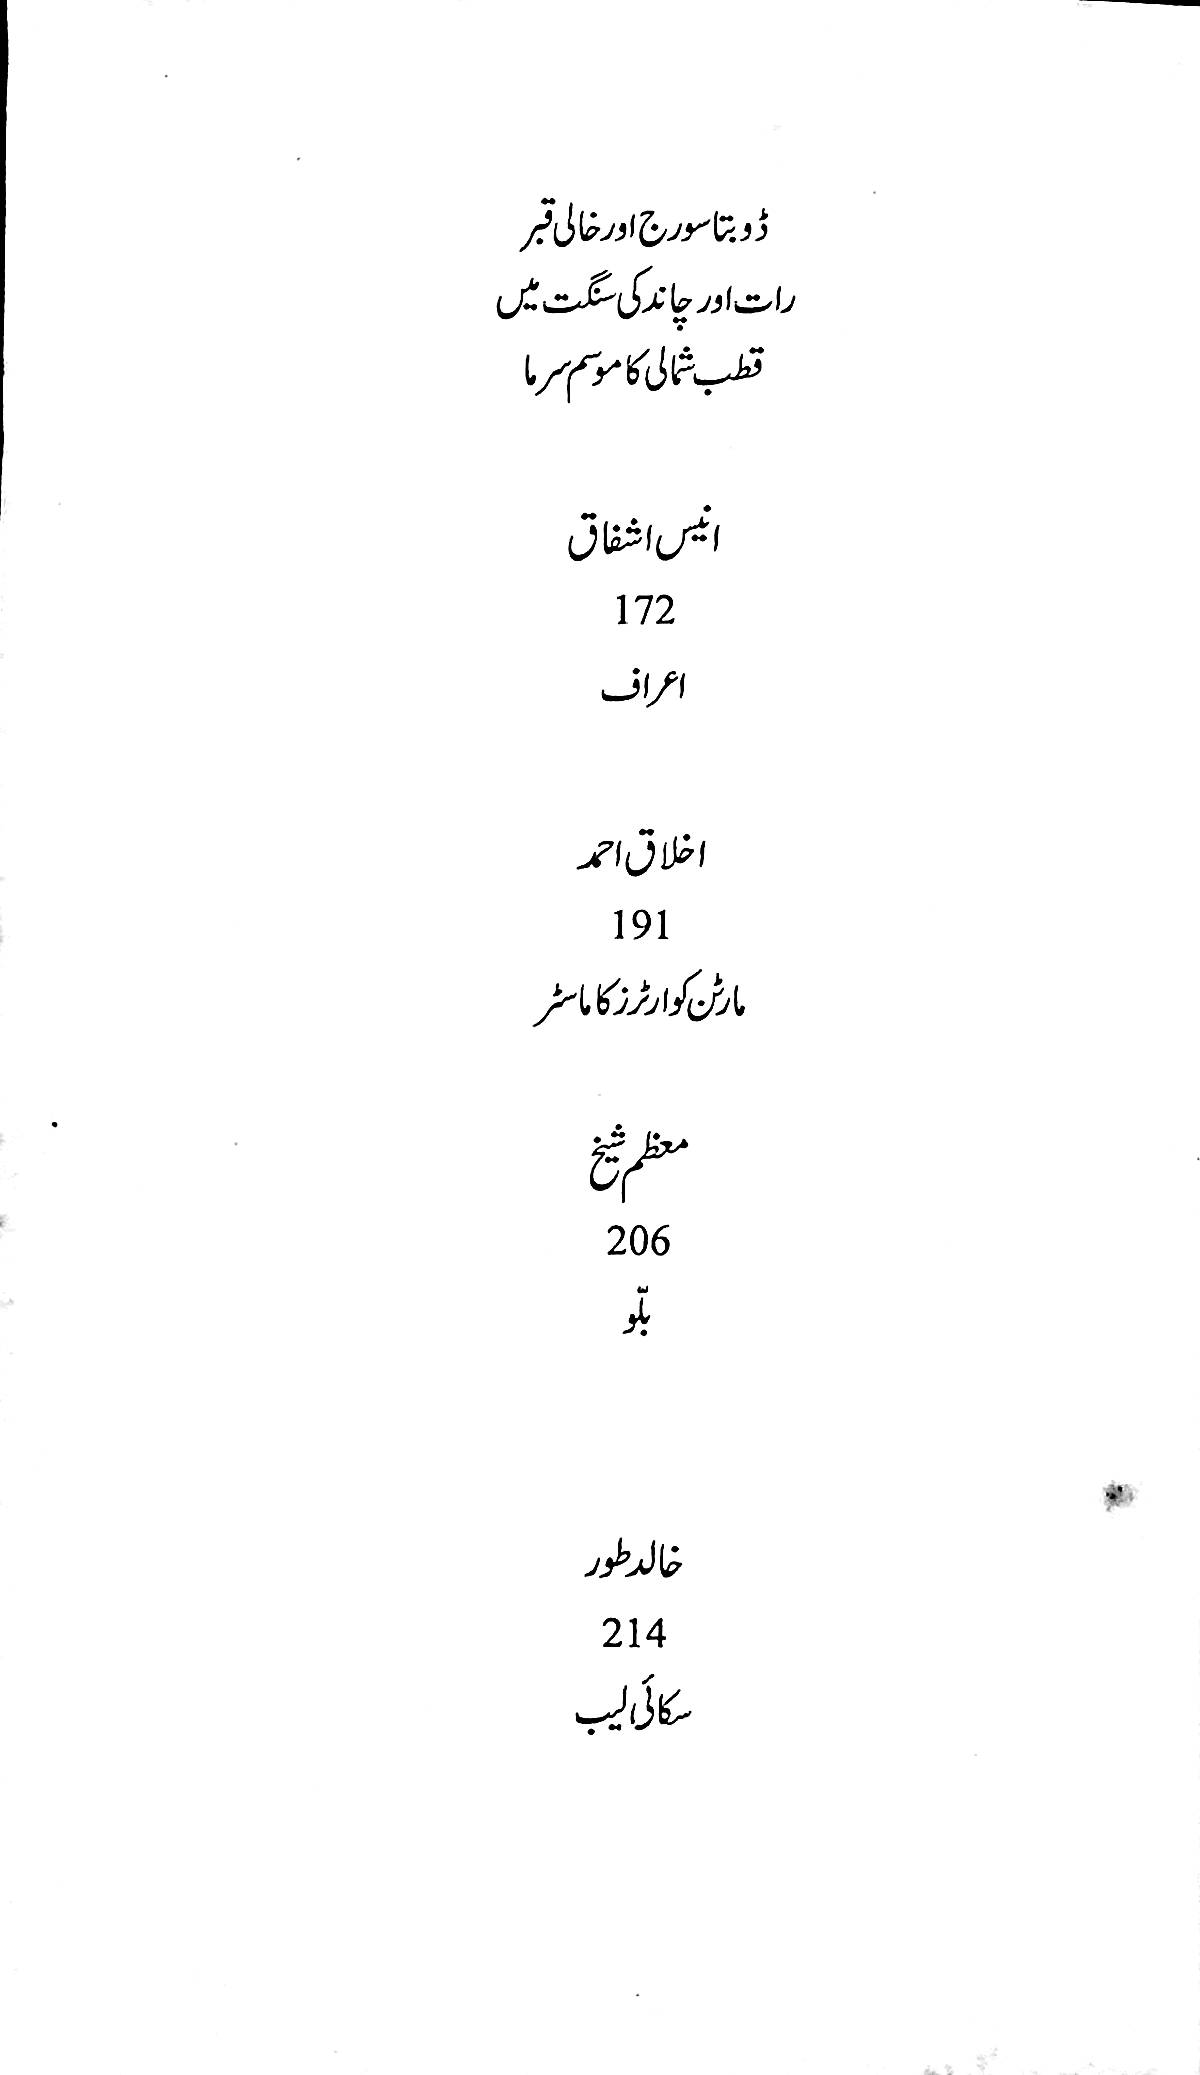 ڈوبتا سورج اور خالی قبر
رات اور چاند کی سنگت میں
قطب شمالی کا موسم سرما
انیس اشفاق
172
اعراف
اخلاق احمد
191
مارٹن کوارٹرز کا ماسٹر
معظم شیخ
206
بلّو
خالد طور
214
سکائی لیب